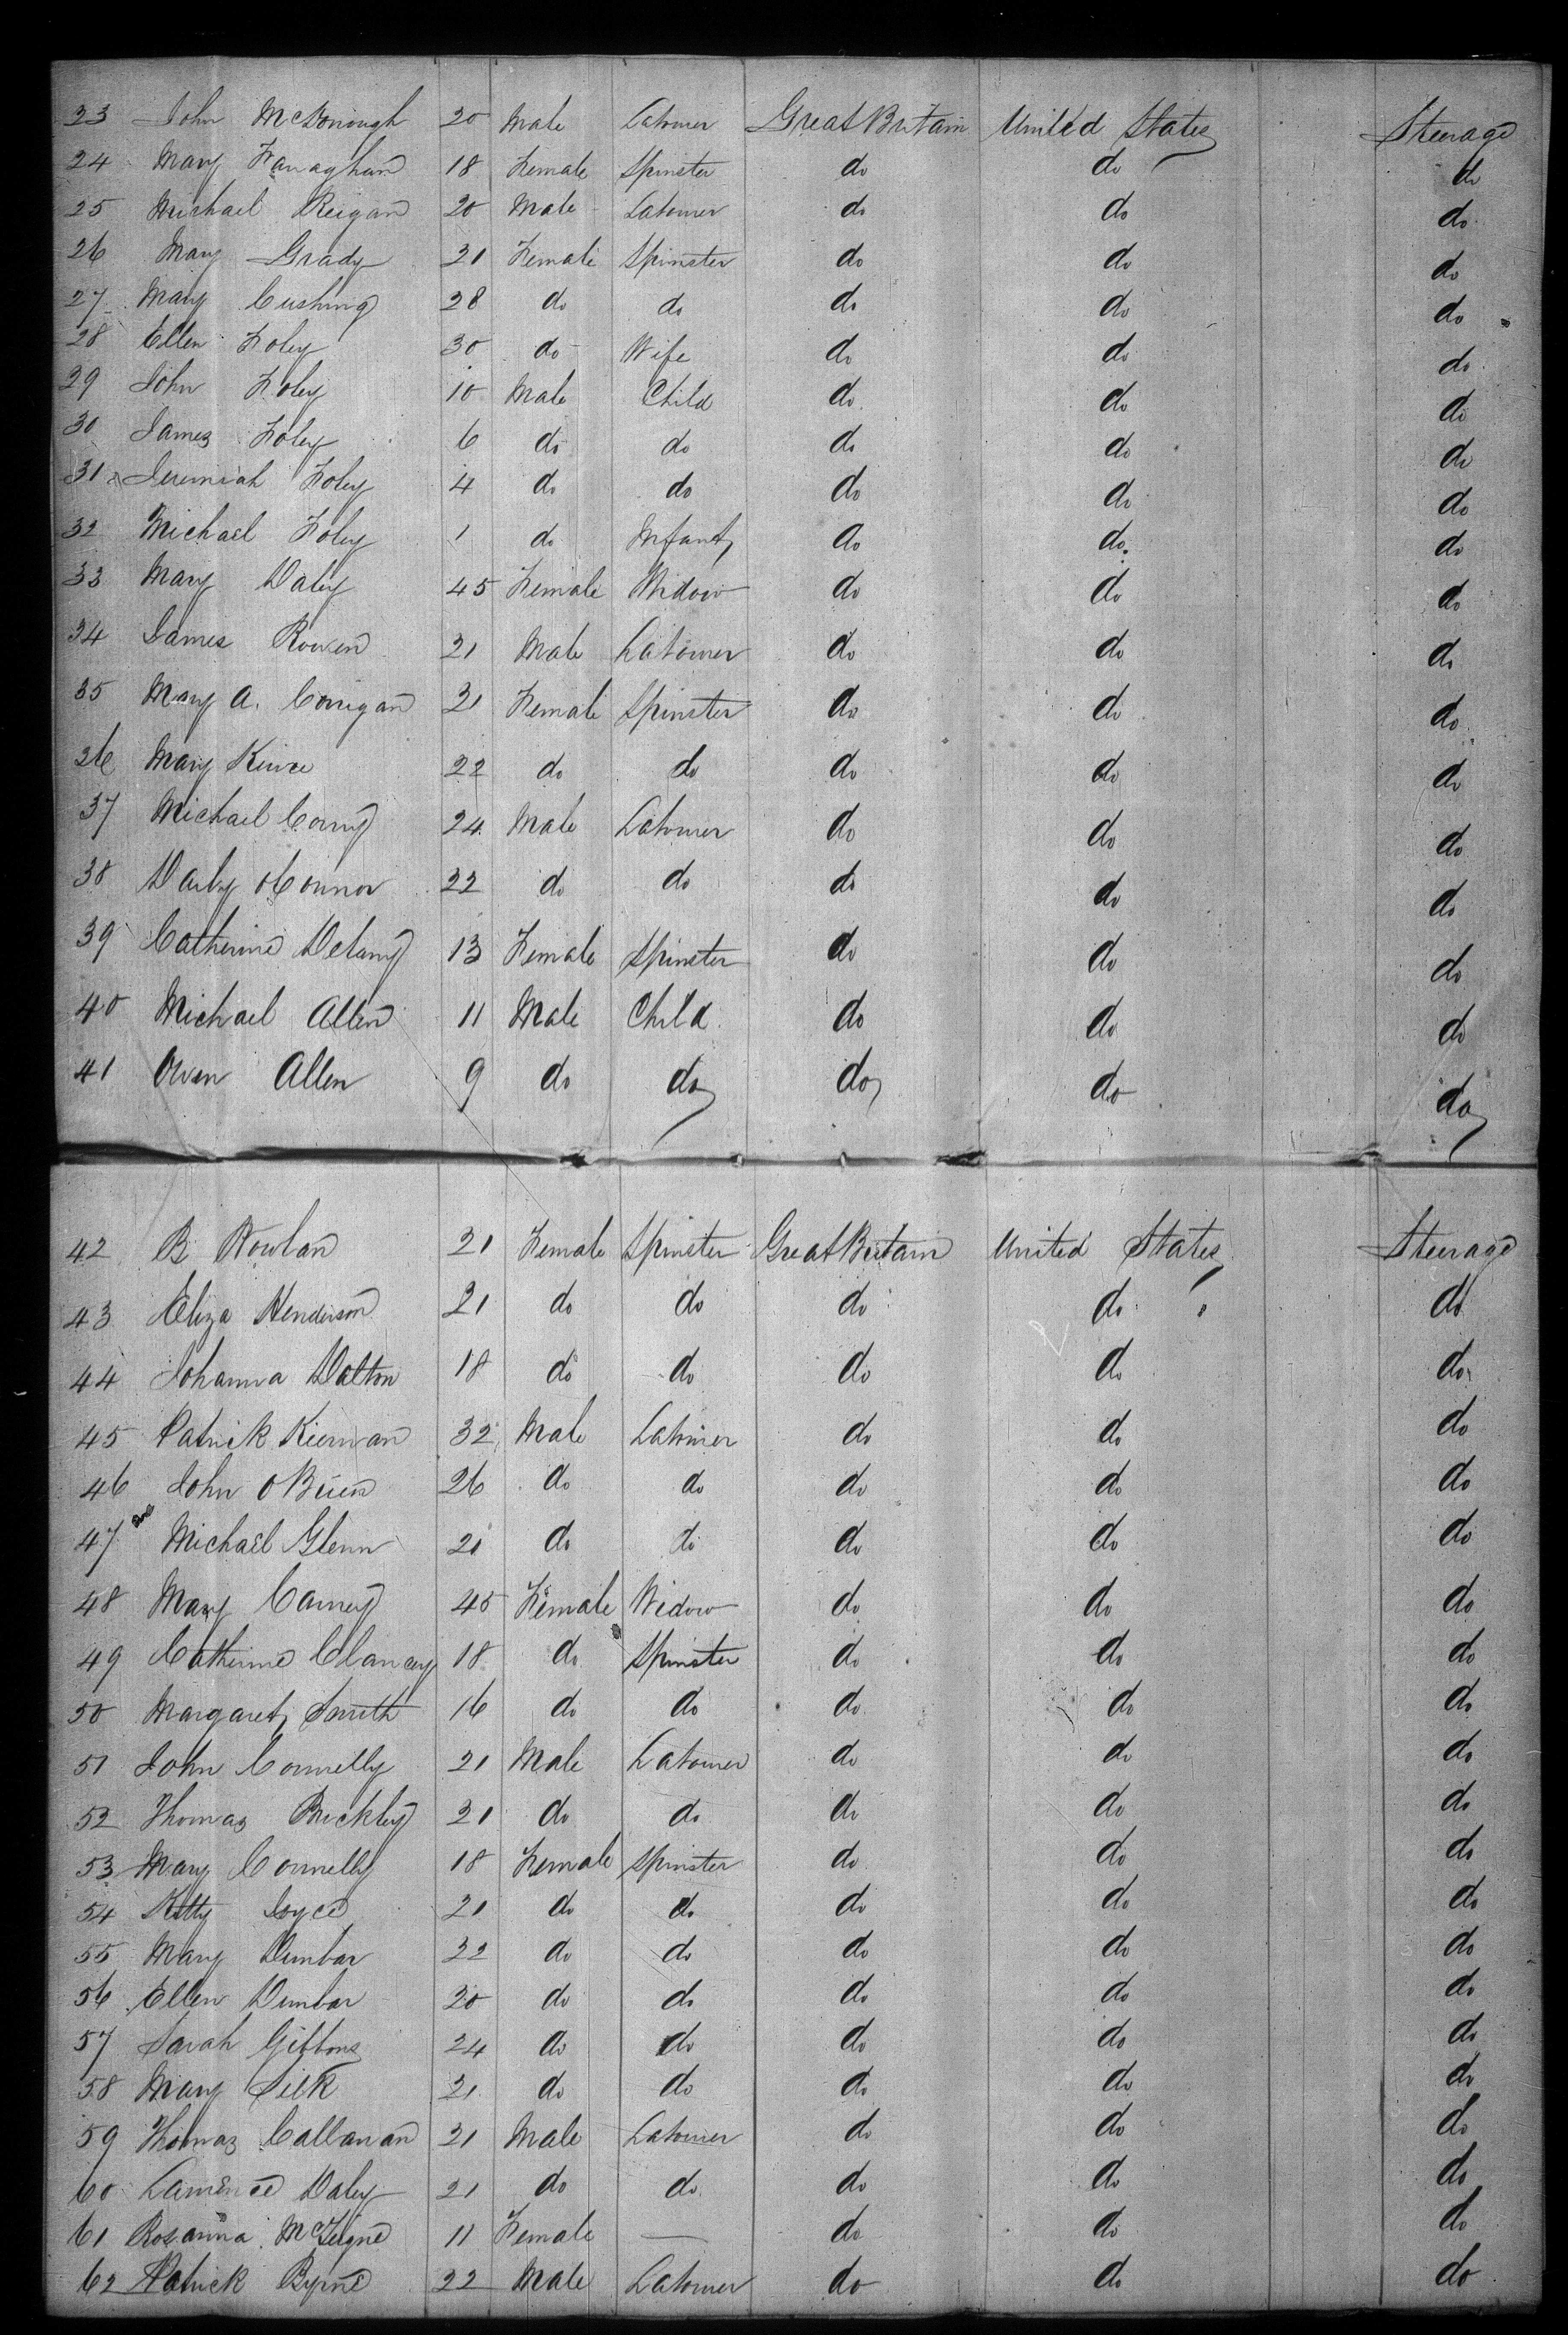 23 John McDonough 20 Male Labourer Great Britain United States Steerage
24 Mary Fanaghan 18 Female Spinster do do do
25 Michael Reigan 20 Male Labourer do do do
26 Mary Grady 21 Female Spinster do do do
27 Mary Cushing 28 do do do do do
28 Ellen Foley 30 do Wife do do do
29 John Foley 10 Male Child do do do
30 James Foley 6 do do do do do
31 Jeremiah Foley 4 do do do do do
32 Michael Foley 1 do Infant do do do
33 Mary Daley 45 Female Widow do do do
34 James Rowen 21 Male Labourer do do do
35 Mary A. Corrigan 21 Female Spinster do do do
36 Mary 22 do do do do do
37 Michael 24 Male Labourer do do do
38 Darby OConnor 22 do do do do do
39 Catherine Delany 13 Female Spinster do do do
40 Michael Allen 11 Male Child do do do
41 Owen Allen 9 do do do do do
42 B Rowlan 21 Female Spinster Great Britain United States Steerage
43 Eliza Henderson 21 do do do do do
44 Johanna Dalton 18 do do do do do
45 Patrick Kiernan 32 Male Labourer do do do
46 John OBrien 26 do do do do do
47 Michael Glenn 21 do do do do do
48 Mary Carney 45 Female Widow do do do
49 Catherine Clancey 18 do Spinster do do do
50 Margaret Smith 16 do do do do do
51 John Connelly 21 Male Labourer do do do
52 Thomas Buckley 21 do do do do do
53 Mary Connelly 18 Female Spinster do do do
54 Kitty Joyce 21 do do do do do
55 Mary Dunbar 22 do do do do do
56 Ellen Dunbar 20 do do do do do
57 Sarah Gibbons 24 do do do do do
58 Mary Silk 21 do do do do do
59 Thomas Callanan 21 Male Labourer do do do
60 Lawrence Daley 21 do do do do do
61 Rosanna McTeigne 11 Female — do do do
62 Patrick Byrne 22 Male Labourer do do do